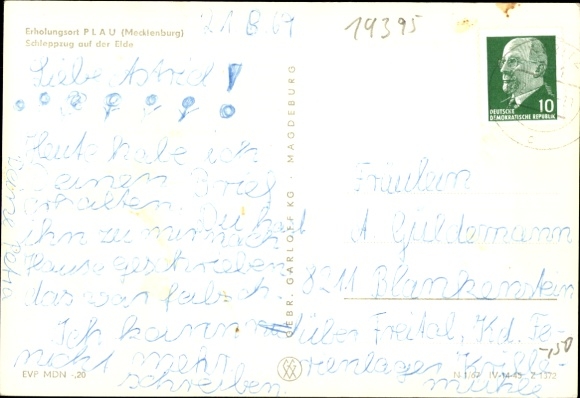 21 8 69
19395
Erholungsort PLAU (Mecklenburg)
Schleppzug auf der Elde
Liebe Astrid!
Heute habe ich
Deinen Brief
erhalten. Du hast
ihn zu mir nach
Hause geschrieben
das war falsch.
Ich kann
nicht mehr
schreiben.
Deine Petra
GEBR. GARLOFF KG · MAGDEBURG
10
DEUTSCHE
DEMOKRATISCHE REPUBLIK
Fräulein
A. Güldemann
8211 Blankenstein
über Freital, K.d. Fe-
rienlager Krille-
mühle
-,50
EVP MDN -,20
N 1/67 IV-14-45 Z 1372